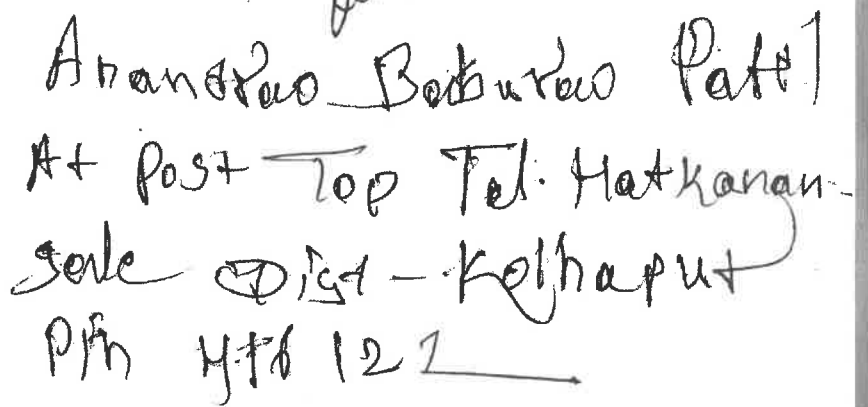 Anandrao Baburao Patil
At Post Top Tal. Hatkanan-
gale Dist - Kolhapur
Pin 416 122